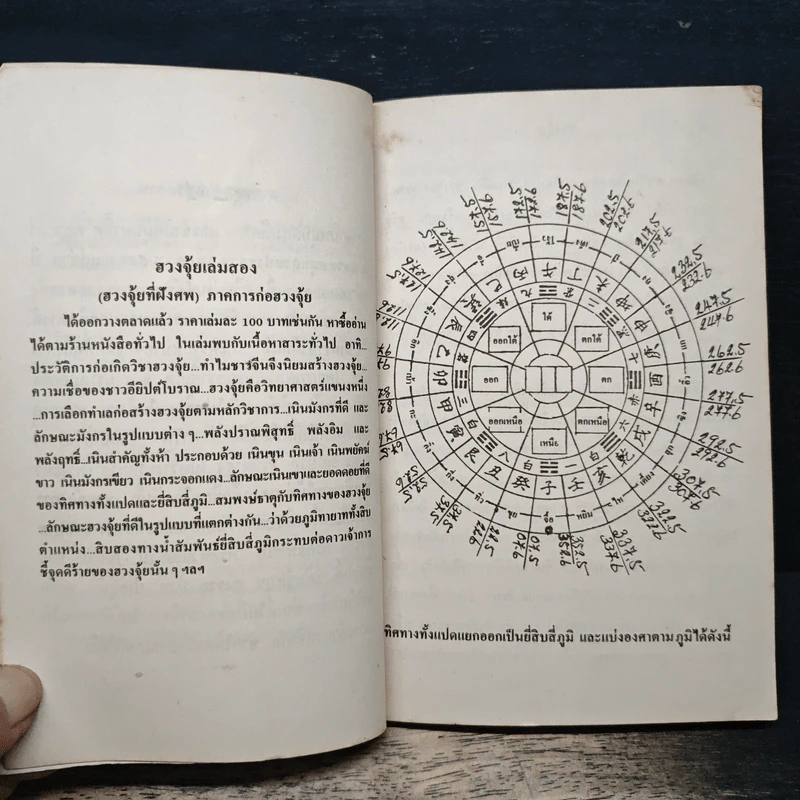 ฮวงจุ้ยเล่มสอง
(ฮวงจุ้ยที่ฝังศพ) ภาคการก่อฮวงจุ้ย
ได้ออกวางตลาดแล้ว ราคาเล่มละ 100 บาทเช่นกัน หาซื้ออ่าน
ได้ตามร้านหนังสือทั่วไป ในเล่มพบกับเนื้อหาสาระทั่วไป อาทิ...
ประวัติการก่อเกิดวิชาฮวงจุ้ย...ทำไมชาวจีนจึงนิยมสร้างฮวงจุ้ย...
ความเชื่อของชาวอียิปต์โบราณ...ฮวงจุ้ยคือวิทยาศาสตร์แขนงหนึ่ง
...การเลือกทำเลก่อสร้างฮวงจุ้ยตามหลักวิชาการ...เนินมังกรที่ดี และ
ลักษณะมังกรในรูปแบบต่าง ๆ...พลังปราณพิสุทธิ์ พลังอิม และ
พลังฤทธิ์...เนินสำคัญทั้งห้า ประกอบด้วย เนินขุน เนินเจ้า เนินพยัคฆ์
ขาว เนินมังกรเขียว เนินกระจอกแดง...ลักษณะเนินเขาและยอดดอยที่ดี
ของทิศทางทั้งแปดและยี่สิบสี่ภูมิ...สมพงษ์ธาตุกับทิศทางของฮวงจุ้ย
...ลักษณะฮวงจุ้ยที่ดีในรูปแบบที่แตกต่างกัน...ว่าด้วยภูมิทายาททั้งสิบ
ตำแหน่ง...สิบสองทางน้ำสัมพันธ์ยี่สิบสี่ภูมิกระทบต่อดาวเจ้าการ
ชี้จุดดีร้ายของฮวงจุ้ยนั้น ๆ ฯลฯ
ใต้
ออกใต้
ตกใต้
ออก
ตก
ออกเหนือ
ตกเหนือ
เหนือ
午 丁 未 坤 申 庚 酉 辛 戌 乾 亥 壬 子 癸 丑 艮 寅 甲 卯 乙 辰 巽 巳 丙
一 白
二
六 白
七 赤
八 白
九
232.5
232.6
247.5
247.6
262.5
262.6
277.5
277.6
292.5
292.6
307.5
307.6
322.5
322.6
337.5
337.6
352.5
352.6
07.5
07.6
22.5
22.6
37.5
ทิศทางทั้งแปดแยกออกเป็นยี่สิบสี่ภูมิ และแบ่งองศาตามภูมิได้ดังนี้